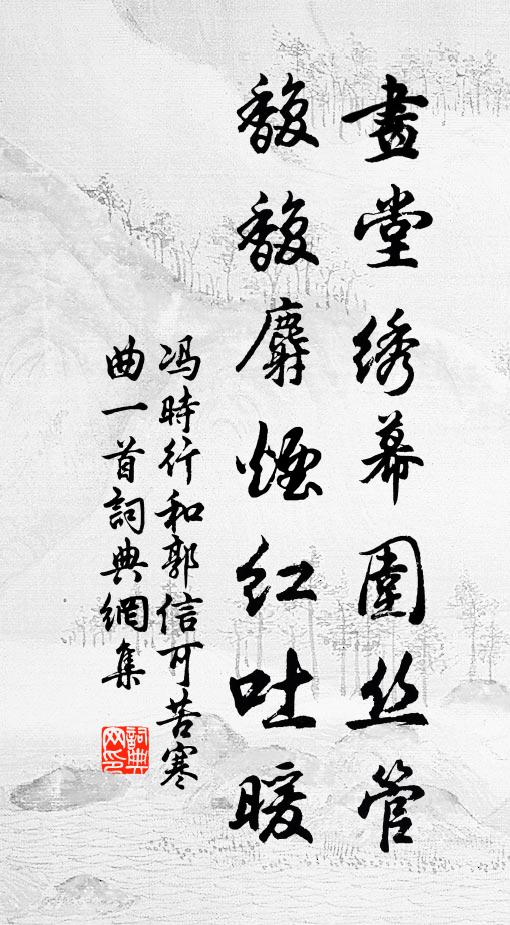 畫堂綉幕圍丝管
馥馥麝煙紅吐暖
冯時行和郭信可苦寒
曲一首詞典網集
詞典网印